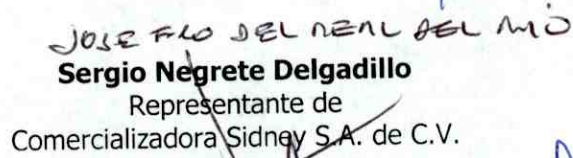 JOSE FCO DEL REAL DEL RIO
Sergio Negrete Delgadillo
Representante de
Comercializadora Sidney S.A. de C.V.